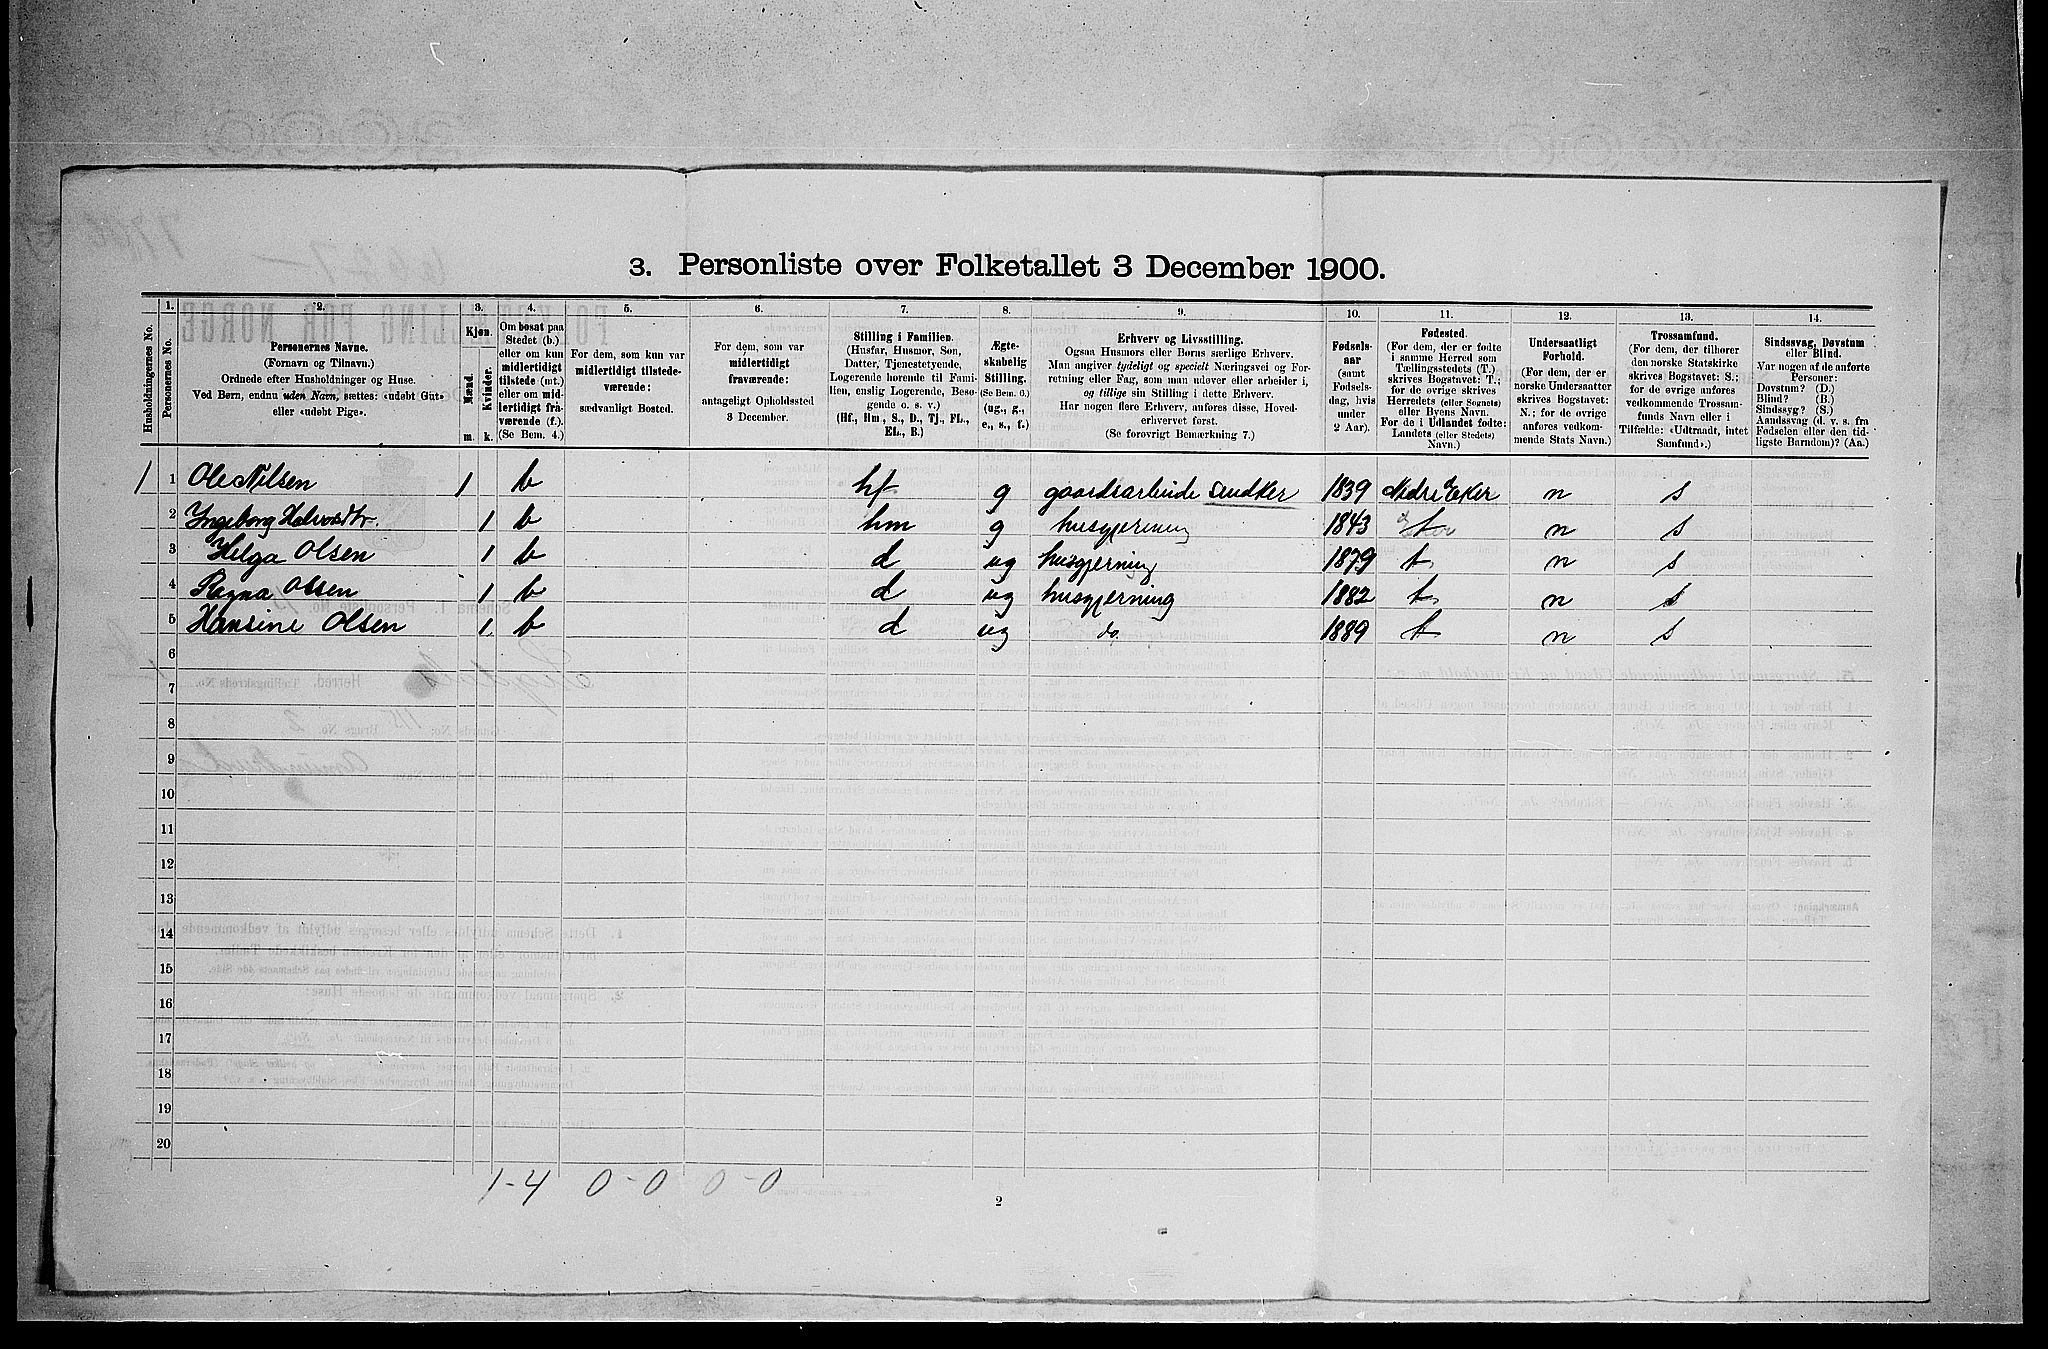 3. Personliste over Folketallet 3 December 1900.
1. 2. 3. 4. 5. 6. 7. 8. 9. 10. 11. 12. 13. 14.
Husholdningernes No.
Personernes No.
Personernes Navne.
(Fornavn og Tilnavn.)
Ordnede efter Husholdninger og Huse.
Ved Børn, endnu uden Navn, sættes: «udøbt Gut»
eller «udøbt Pige».
Kjøn.
Mænd. Kvinder.
m. k.
Om bosat paa
Stedet (b.)
eller om kun
midlertidigt
tilstede (mt.)
eller om mid-
lertidigt fra-
værende (f.).
(Se Bem. 4.)
For dem, som kun var
midlertidigt tilstede-
værende:
sædvanligt Bosted.
For dem, som var
midlertidigt
fraværende:
antageligt Opholdssted
3 December.
Stilling i Familien.
(Husfar, Husmor, Søn,
Datter, Tjenestetyende,
Logerende hørende til Fami-
lien, enslig Logerende, Besø-
gende o. s. v.)
(Hf., Hm., S., D., Tj., FL.,
EL., B.)
Ægte-
skabelig
Stilling.
(Se Bem. 6.)
(ug., g.,
e., s., f.)
Erhverv og Livsstilling.
Ogsaa Husmors eller Børns særlige Erhverv.
Man angiver tydeligt og specielt Næringsvei og For-
retning eller Fag, som man udøver eller arbeider i,
og tillige sin Stilling i dette Erhverv.
Har nogen flere Erhverv, anføres disse, Hoved-
erhvervet først.
(Se forøvrigt Bemærkning 7.)
Fødsels-
aar
(samt
Fødsels-
dag, hvis
under
2 Aar).
Fødested.
(For dem, der er fødte
i samme Herred som
Tællingsstedets (T.)
skrives Bogstavet: T.;
for de øvrige skrives
Herredets (eller Sognets)
eller Byens Navn.
For de i Udlandet fødte:
Landets (eller Stedets)
Navn.)
Undersaatligt
Forhold.
(For dem, der er
norske Undersaatter
skrives Bogstavet:
N.; for de øvrige
anføres vedkom-
mende Stats Navn.)
Trossamfund.
(For dem, der tilhører
den norske Statskirke
skrives Bogstavet: S.;
for de øvrige anføres
vedkommende Trossam-
funds Navn eller i
Tilfælde: «Udtraadt, intet
Samfund».)
Sindssvag, Døvstum
eller Blind.
Var nogen af de anførte
Personer:
Døvstum? (D.)
Blind? (B.)
Sindssyg? (S.)
Aandssvag (d. v. s. fra
Fødselen eller den tid-
ligste Barndom)? (Aa.)
1 1 Ole Nilsen 1 b hf g gaardsarbeide Snedker 1839 Nedre Eker n s
2 Ingeborg Halvorsdtr. 1 b hm g husgjerning 1843 t n s
3 Helga Olsen 1 b d ug husgjerning 1879 t n s
4 Ragna Olsen 1 b d ug husgjerning 1882 t n s
5 Hansine Olsen 1 b d ug do. 1889 t n s
6
7
8
9
10
11
12
13
14
15
16
17
18
19
20
1-4 0-0 0-0
2